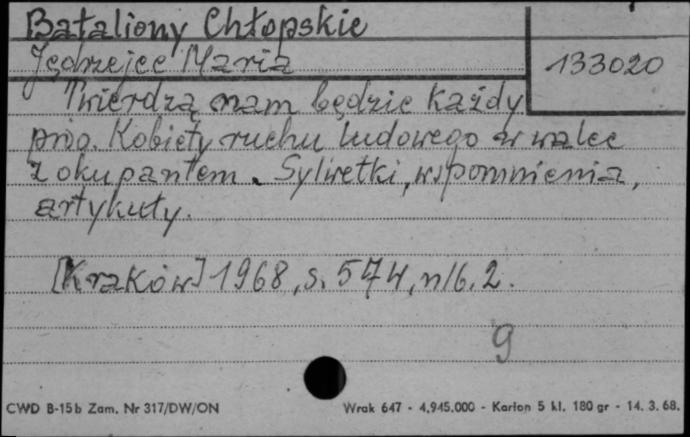 Bataliony Chłopskie
Jędrzejec Maria
133020
Twierdzą nam będzie każdy
próg. Kobiety ruchu ludowego w walce
z okupantem. Sylwetki, wspomnienia,
artykuły.
[Kraków] 1968, s. 574, nlb. 2.
9
CWD B-15b Zam. Nr 317/DW/ON
Wrak 647 - 4.945.000 - Karton 5 kl. 180 gr - 14. 3. 68.